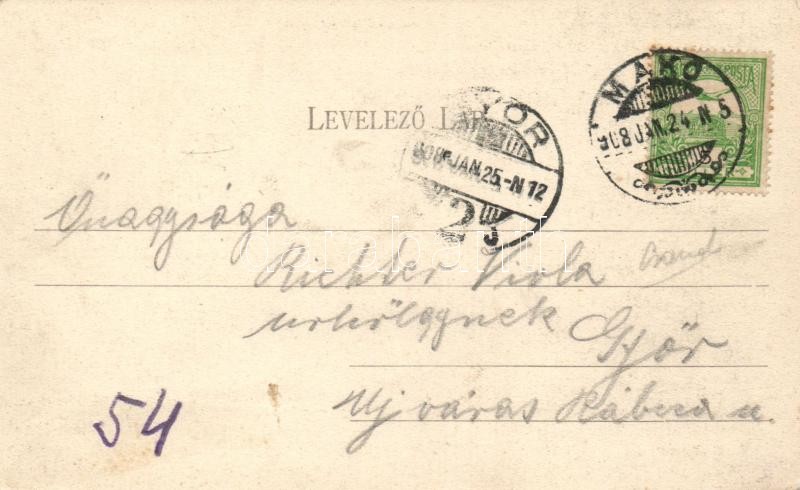 MAKÓ
908 JAN. 24. N 5
POSTA
GYŐR
908 JAN. 25.-N 12
2
LEVELEZŐ LAP
Őnagysága
Richter Viola
úrhölgynek
Győr
Ujváros Rábca u.
54